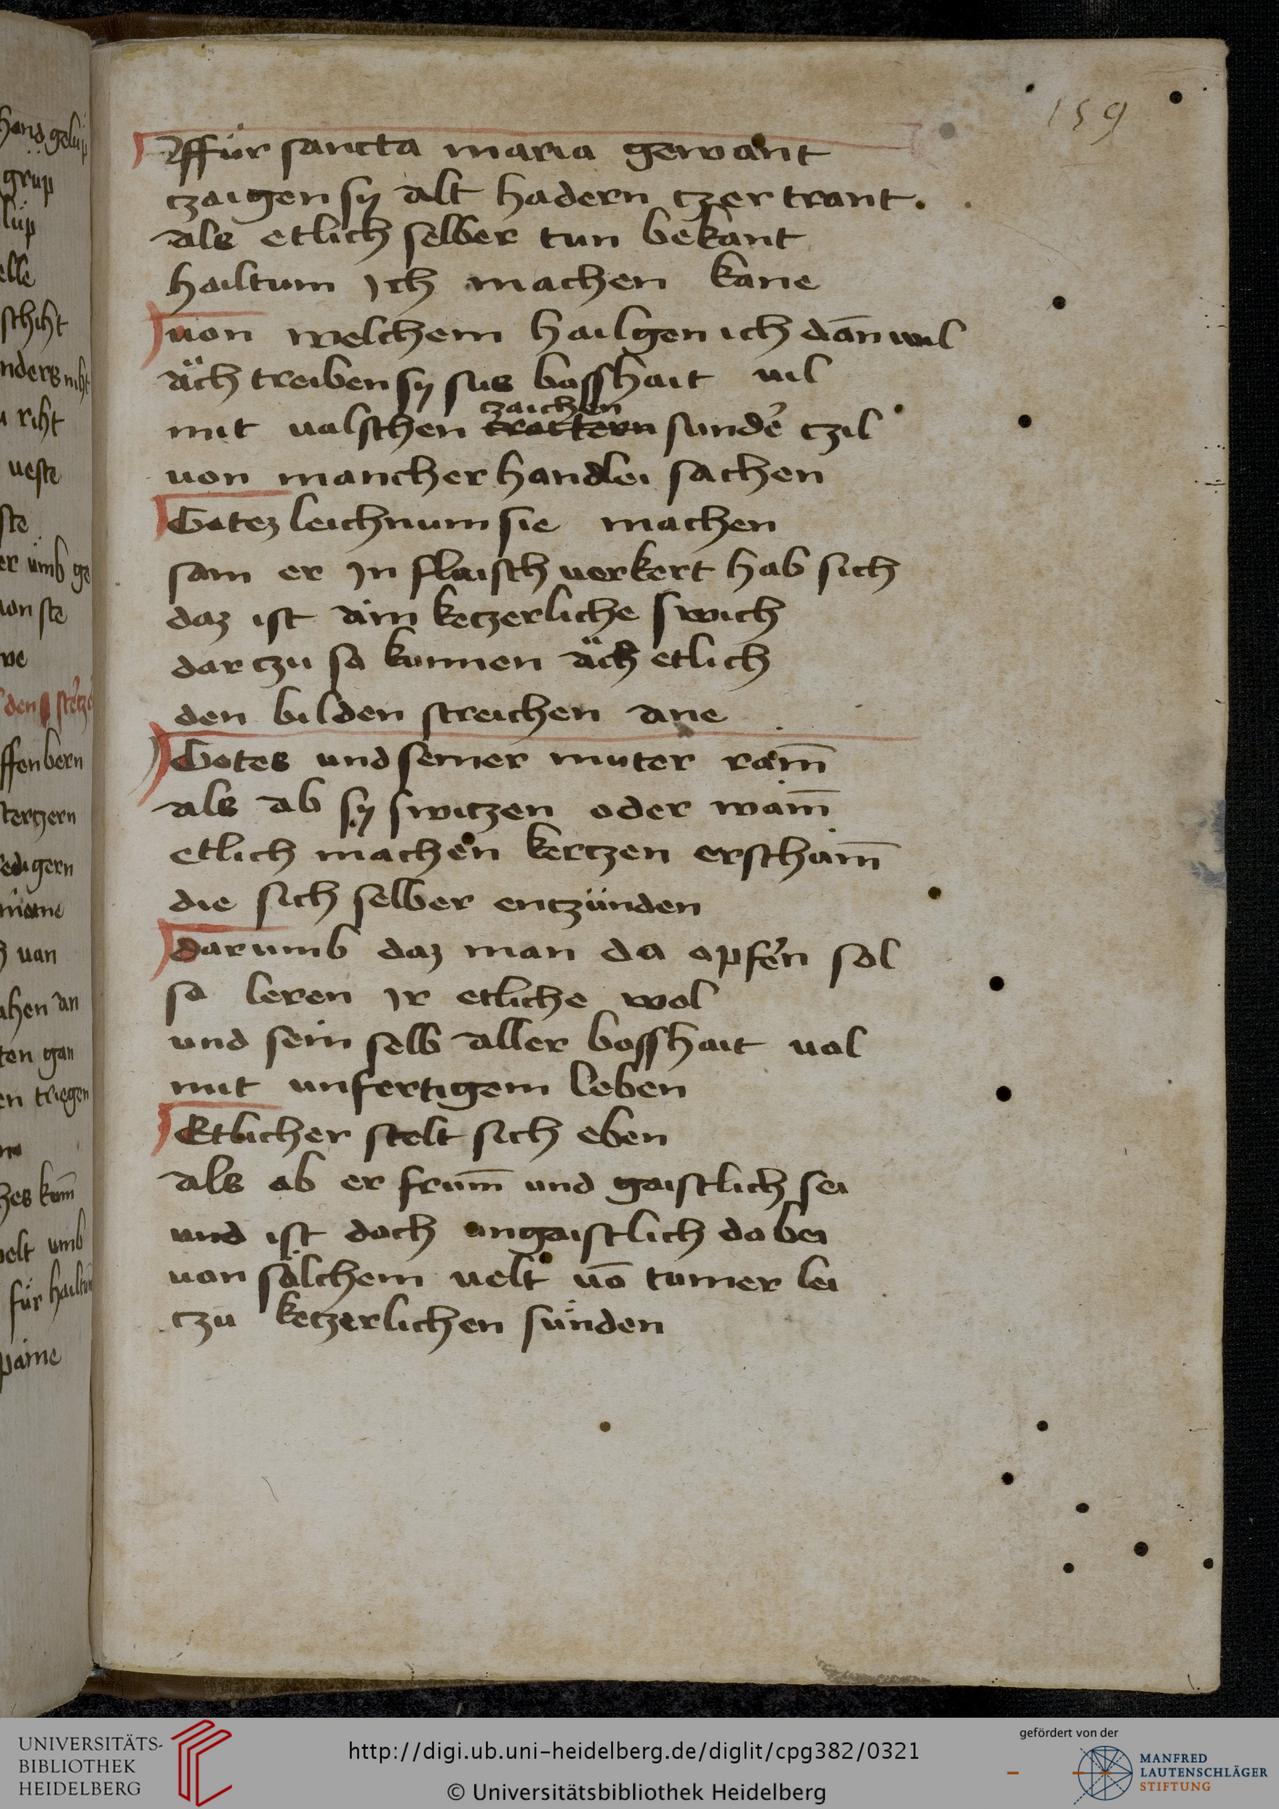 159
Iffür sancta maria gewant
czaigen sy alt hadern czertrant.
als etlich selber tun bekant
hailtum Ich machen kane
uon welchem hailgen ich dān wil
äch treiben sy sus bosshait uil
mit ualschen czaichen sunde᷑ czil
uon mancher handlei sachen
Gotez leichnum sie machen
sam er In flaisch uerkert hab sich
daz ist ain keczerliche swich
dar czu so kunnen äch etlich
den bilden streichen ane
Gotes und seiner muter ram̄
als ab sy switzen oder wam̄
etlich machen kerczen erscham̄
die sich selber entzünden
darumb daz man da opfe᷑n sol
so leren Ir etliche wol
und sein selb aller bosshait uol
mit unfertigem leben
Etlicher stelt sich eben
als ob er frum̄ und gaistlich sei
und ist doch ungaistlich da bei
uon sölchem uelt uō tumer lei
czu keczerlichen sünden
hand gelüp
grüp
lüp
elle
schiht
nders niht
riht
ueste
ste
er ümb ge
uon ste
we
den sterze
ffenbern
terczern
edigern
h uan
ahen an
ten gan
en triegen
hes kum̄
elt umb
für hailtū
paine
UNIVERSITÄTS-
BIBLIOTHEK
HEIDELBERG
http://digi.ub.uni-heidelberg.de/diglit/cpg382/0321
© Universitätsbibliothek Heidelberg
gefördert von der
MANFRED
LAUTENSCHLÄGER
STIFTUNG